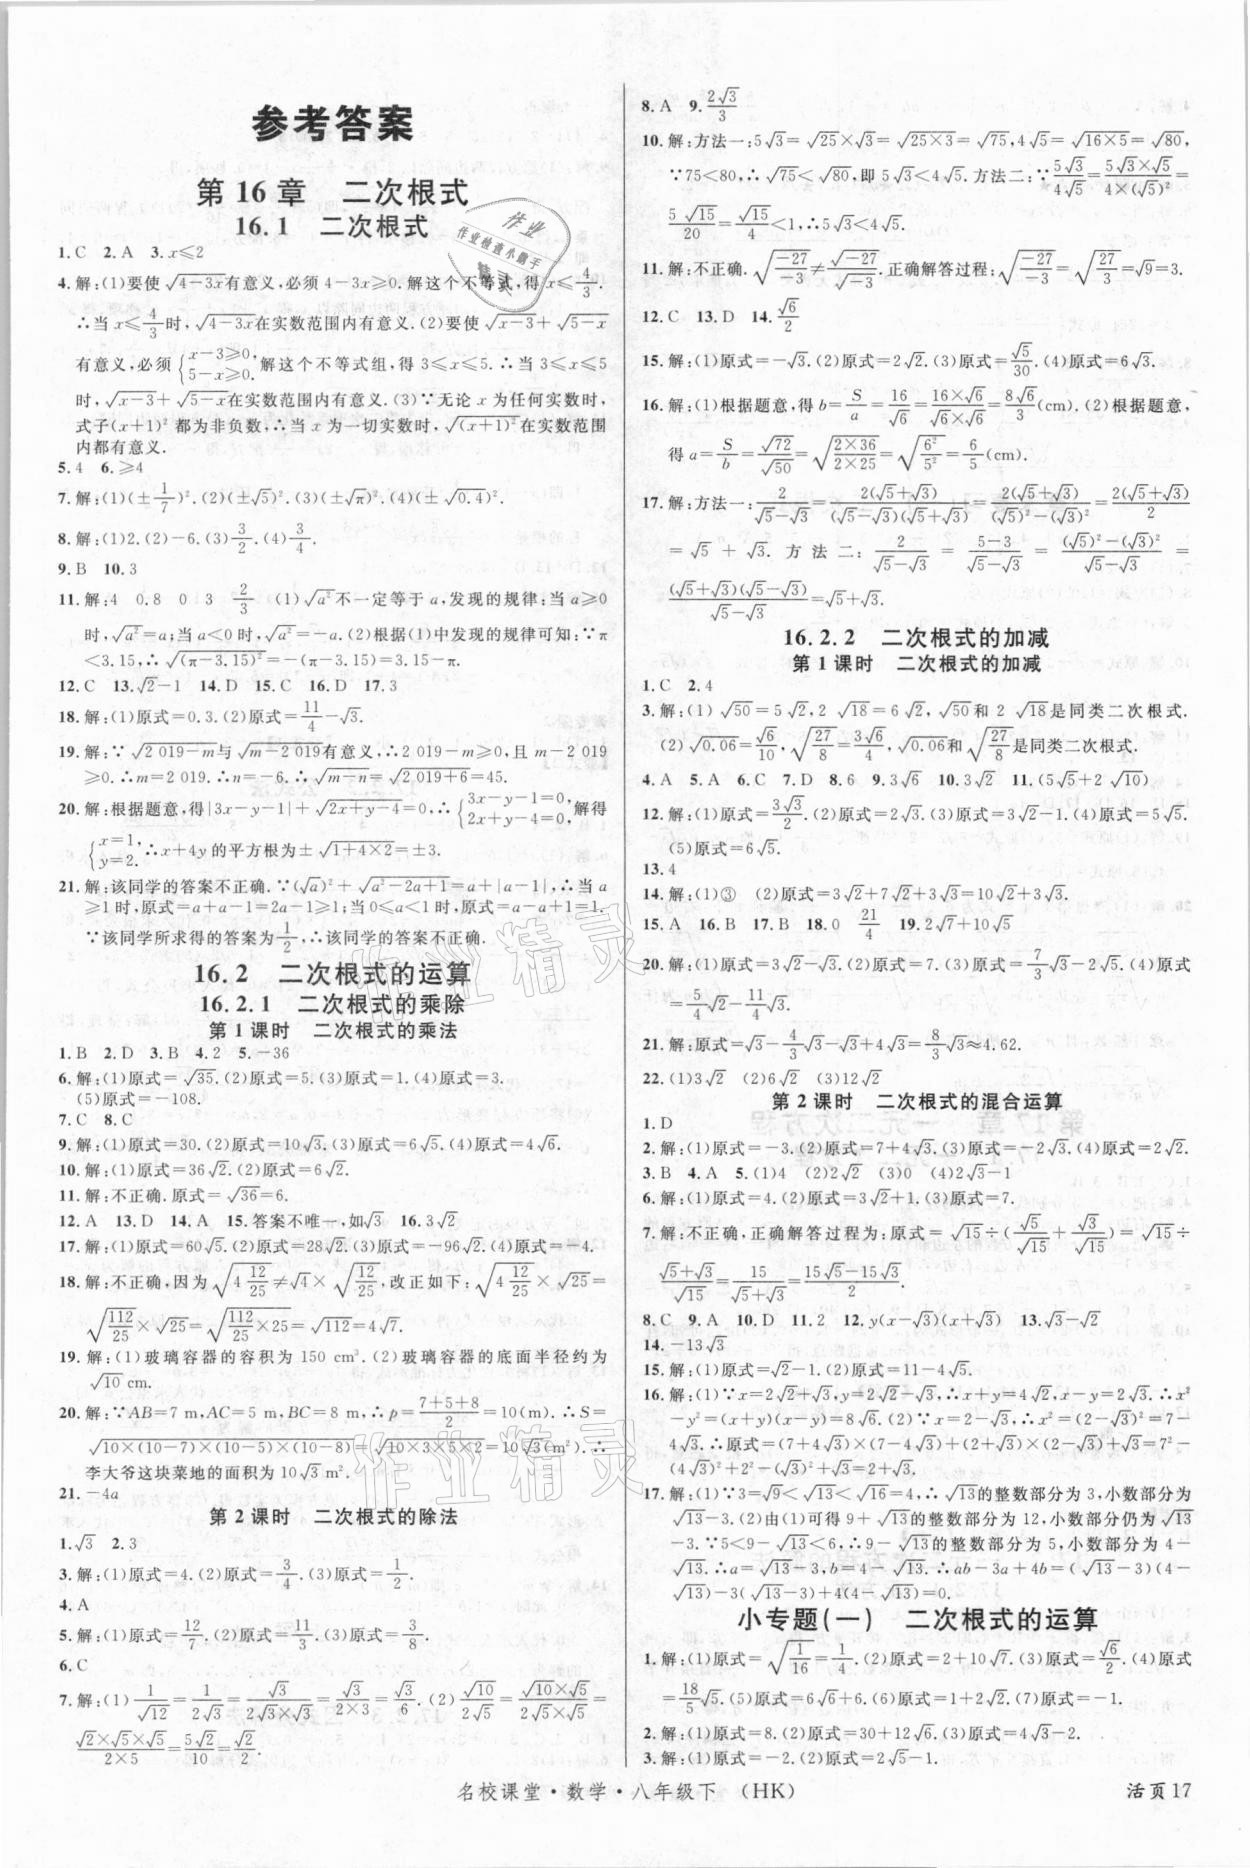 参考答案
第16章 二次根式
16.1 二次根式
1.C 2.A 3.x≤2
4.解:(1)要使√(4-3x)有意义,必须4-3x≥0.解这个不等式,得x≤4/3.
∴当x≤4/3时,√(4-3x)在实数范围内有意义.(2)要使√(x-3)+√(5-x)
有意义,必须{x-3≥0, 5-x≥0.解这个不等式组,得3≤x≤5.∴当3≤x≤5
时,√(x-3)+√(5-x)在实数范围内有意义.(3)∵无论x为任何实数时,
式子(x+1)²都为非负数,∴当x为一切实数时,√((x+1)²)在实数范围
内都有意义.
5.4 6.≥4
7.解:(1)(±1/7)².(2)(±√5)².(3)(±√π)².(4)(±√0.4)².
8.解:(1)2.(2)-6.(3)3/2.(4)3/4.
9.B 10.3
11.解:4 0.8 0 3 2/3 (1)√(a²)不一定等于a,发现的规律:当a≥0
时,√(a²)=a;当a<0时,√(a²)=-a.(2)根据(1)中发现的规律可知:∵π
<3.15,∴√((π-3.15)²)=-(π-3.15)=3.15-π.
12.C 13.√2-1 14.D 15.C 16.D 17.3
18.解:(1)原式=0.3.(2)原式=11/4-√3.
19.解:∵√(2 019-m)与√(m-2 019)有意义,∴2 019-m≥0,且m-2 019
≥0.∴m=2 019.∴n=-6.∴√(m-n)=√(2 019+6)=45.
20.解:根据题意,得|3x-y-1|+√(2x+y-4)=0,∴{3x-y-1=0, 2x+y-4=0,解得
{x=1, y=2.∴x+4y的平方根为±√(1+4×2)=±3.
21.解:该同学的答案不正确.∵(√a)²+√(a²-2a+1)=a+|a-1|,∴当a
≥1时,原式=a+a-1=2a-1≥1;当0≤a<1时,原式=a-a+1=1.
∵该同学所求得的答案为1/2,∴该同学的答案不正确.
16.2 二次根式的运算
16.2.1 二次根式的乘除
第1课时 二次根式的乘法
1.B 2.D 3.B 4.2 5.-36
6.解:(1)原式=√35.(2)原式=5.(3)原式=4.(4)原式=4√5.
(5)原式=-108.
7.C 8.C
9.解:(1)原式=2√3.(2)原式=10√3.(3)原式=6√3.(4)原式=4√6.
10.解:(1)原式=36√2.(2)原式=6√2.
11.解:不正确.原式=√36=6.
12.A 13.D 14.A 15.答案不唯一,如√3 16.3√2
17.解:(1)原式=60√5.(2)原式=28√2.(3)原式=-96√2.(4)原式=-4.
18.解:不正确,因为√(4 12/25)≠√4×√(12/25),改正如下:√(4 12/25)×√25=
√(112/25)×√25=√(112/25×25)=√112=4√7.
19.解:(1)玻璃容器的容积为150 cm³.(2)玻璃容器的底面半径约为
√10 cm.
20.解:∵AB=7 m,AC=5 m,BC=8 m,∴p=(7+5+8)/2=10(m).∴S=
√(10×(10-7)×(10-5)×(10-8))=√(10×3×5×2)=10√3(m²).∴
李大爷这块菜地的面积为10√3 m².
21.-4a
第2课时 二次根式的除法
1.√3 2.3
3.解:(1)原式=4.(2)原式=3/4.(3)原式=√3.(4)原式=√2.
4.A
5.解:(1)原式=12/7.(2)原式=11/3.(3)原式=3/8.
6.C
7.解:(1)1/√12=1/(2√3)=√3/(2√3×√3)=√3/(2×3)=√3/6.(2)√10/(2√5)=(√10×√5)/(2√5×√5)=
(√2×√5×√5)/(2×5)=5√2/10=√2/2.
8.A 9.2√3/3
10.解:方法一:5√3=√25×√3=√(25×3)=√75,4√5=√(16×5)=√80,
∵75<80,∴√75<√80,即5√3<4√5.方法二:∵5√3/4√5=(5√3×√5)/(4×(√5)²)=
5√15/20=√15/4<1,∴5√3<4√5.
11.解:不正确.√(-27/-3)≠√-27/√-3.正确解答过程:√(-27/-3)=√(27/3)=√9=3.
12.C 13.D 14.√6/2
15.解:(1)原式=-√3.(2)原式=2√2.(3)原式=√5/30.(4)原式=6√3.
16.解:(1)根据题意,得b=S/a=16/√6=(16×√6)/(√6×√6)=8√6/3(cm).(2)根据题意,
得a=S/b=√72/√50=√((2×36)/(2×25))=√(6²/5²)=6/5(cm).
17.解:方法一:2/(√5-√3)=2(√5+√3)/((√5-√3)(√5+√3))=2(√5+√3)/((√5)²-(√3)²)=2(√5+√3)/2
=√5+√3.方法二:2/(√5-√3)=(5-3)/(√5-√3)=((√5)²-(√3)²)/(√5-√3)=
(√5+√3)(√5-√3)/(√5-√3)=√5+√3.
16.2.2 二次根式的加减
第1课时 二次根式的加减
1.C 2.4
3.解:(1)√50=5√2,2√18=6√2,√50和2√18是同类二次根式.
(2)√0.06=√6/10,√(27/8)=3√6/4,√0.06和√(27/8)是同类二次根式.
4.A 5.A 6.C 7.D 8.6 9.3√6 10.3√2 11.(5√5+2√10)
12.解:(1)原式=3√3/2.(2)原式=2√2.(3)原式=3√2-1.(4)原式=5√5.
(5)原式=6√5.
13.4
14.解:(1)③ (2)原式=3√2+7√2+3√3=10√2+3√3.
15.A 16.B 17.B 18.0 21/4 19.2√7+10√5
20.解:(1)原式=√2.(2)原式=3√3.(3)原式=7/3√3-2√5.(4)原式
=5/4√2-11/4√3.
21.解:原式=√3-4/3√3-√3+4√3=8/3√3≈4.62.
22.(1)3√2 (2)6√2 (3)12√2
第2课时 二次根式的混合运算
1.D
2.解:(1)原式=2.(2)原式=7+4√3.(3)原式=7√6.(4)原式=2√2.
3.B 4.A 5.(1)4 (2)2√2 (3)0 (4)2√3-1
6.解:(1)原式=4.(2)原式=3√2+1.(3)原式=7.
7.解:不正确,正确解答过程为:原式=√15÷(√5/√15+√3/√15)=√15÷
(√5+√3)/√15=15/(√5+√3)=(15√5-15√3)/2.
8.C 9.A 10.D 11.2 12.y(x-√3)(x+√3) 13.√3-√2
14.-13√3
15.解:(1)原式=√6-1.(2)原式=11-4√5.
16.解:(1)∵x=2√2+√3,y=2√2-√3,∴x+y=4√2,x-y=2√3.∴x²
-y²=(x+y)(x-y)=8√6.(2)∵x=2-√3,∴x²=(2-√3)²=7-
4√3.∴原式=(7+4√3)×(7-4√3)+(2+√3)×(2-√3)+√3=7²-
(4√3)²+2²-(√3)²+√3=49-48+4-3+√3=2+√3.
17.解:(1)∵3=√9<√13<√16=4,∴√13的整数部分为3,小数部分为
√13-3.(2)由(1)可得9+√13的整数部分为12,小数部分仍为√13
-3.∵5<9-√13<6,∴9-√13的整数部分为5,小数部分为4-
√13.∴a=√13-3,b=4-√13.∴ab-3a+4b=(√13-3)(4-
√13)-3(√13-3)+4(4-√13)=0.
小专题(一) 二次根式的运算
1.解:(1)原式=√(1/16)=1/4.(2)原式=2+10√7.(3)原式=√6/2.(4)原式
=18/5√5.(5)原式=√2+√6.(6)原式=1+2√2.(7)原式=-1.
2.解:(1)原式=8.(2)原式=30+12√6.(3)原式=4√3-2.
3.解:(1)原式=-2.(2)原式=2√5-1.
名校课堂·数学·八年级下 (HK)
活页17
作业
作业检查小助手
精灵
作业精灵
作业精灵